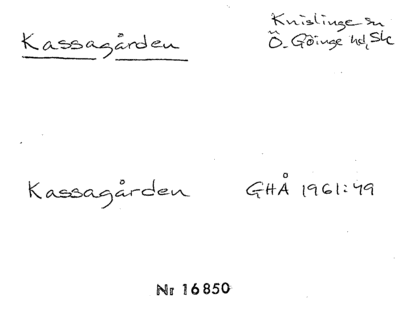 Kassagården
Knislinge sn
Ö. Göinge hd, Sk
Kassagården GHÅ 1961:49
Nr 16850